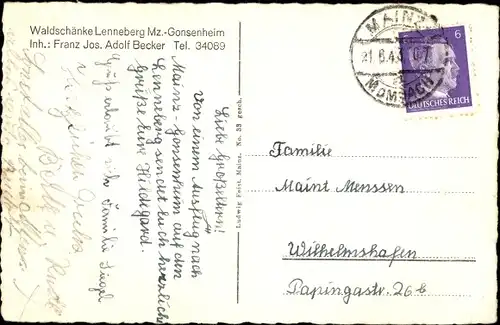 Waldschänke Lenneberg Mz.-Gonsenheim
Inh.: Franz Jos. Adolf Becker Tel. 34069
MAINZ
21.6.43
6
DEUTSCHES REICH
Liebe Großeltern!
Von einem Ausflug nach
Mainz-Gonsenheim auf den
Lenneberg sendet Euch herzliche
Grüße Eure Hildegard.
Gruß erlaubt sich Familie
Herzlichen
Ludwig Feist, Mainz. No. 33 gesch.
Familie
Maint Menssen
Wilhelmshafen
Papingastr. 26 b